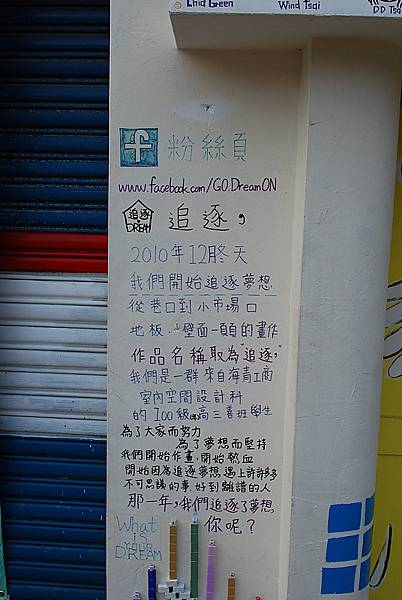 Chid Green
Wind Tsai
DD Tsa
f 粉絲頁
www.facebook.com/GO.DreamON
追逐 DREAM 追逐,
2010年12月冬天
我們開始追逐夢想
從巷口到小市場口
地板、壁面一頭的畫作
作品名稱取為"追逐,"
我們是一群來自海青工商
室內空間設計科
的100級高三善班學生
為了大家而努力
為了夢想而堅持
我們開始作畫、開始熱血
開始因為追逐夢想遇上許許多多
不可思議的事 好到離譜的人
那一年,我們追逐了夢想
你呢?
What
IS
YOUR
DREAM